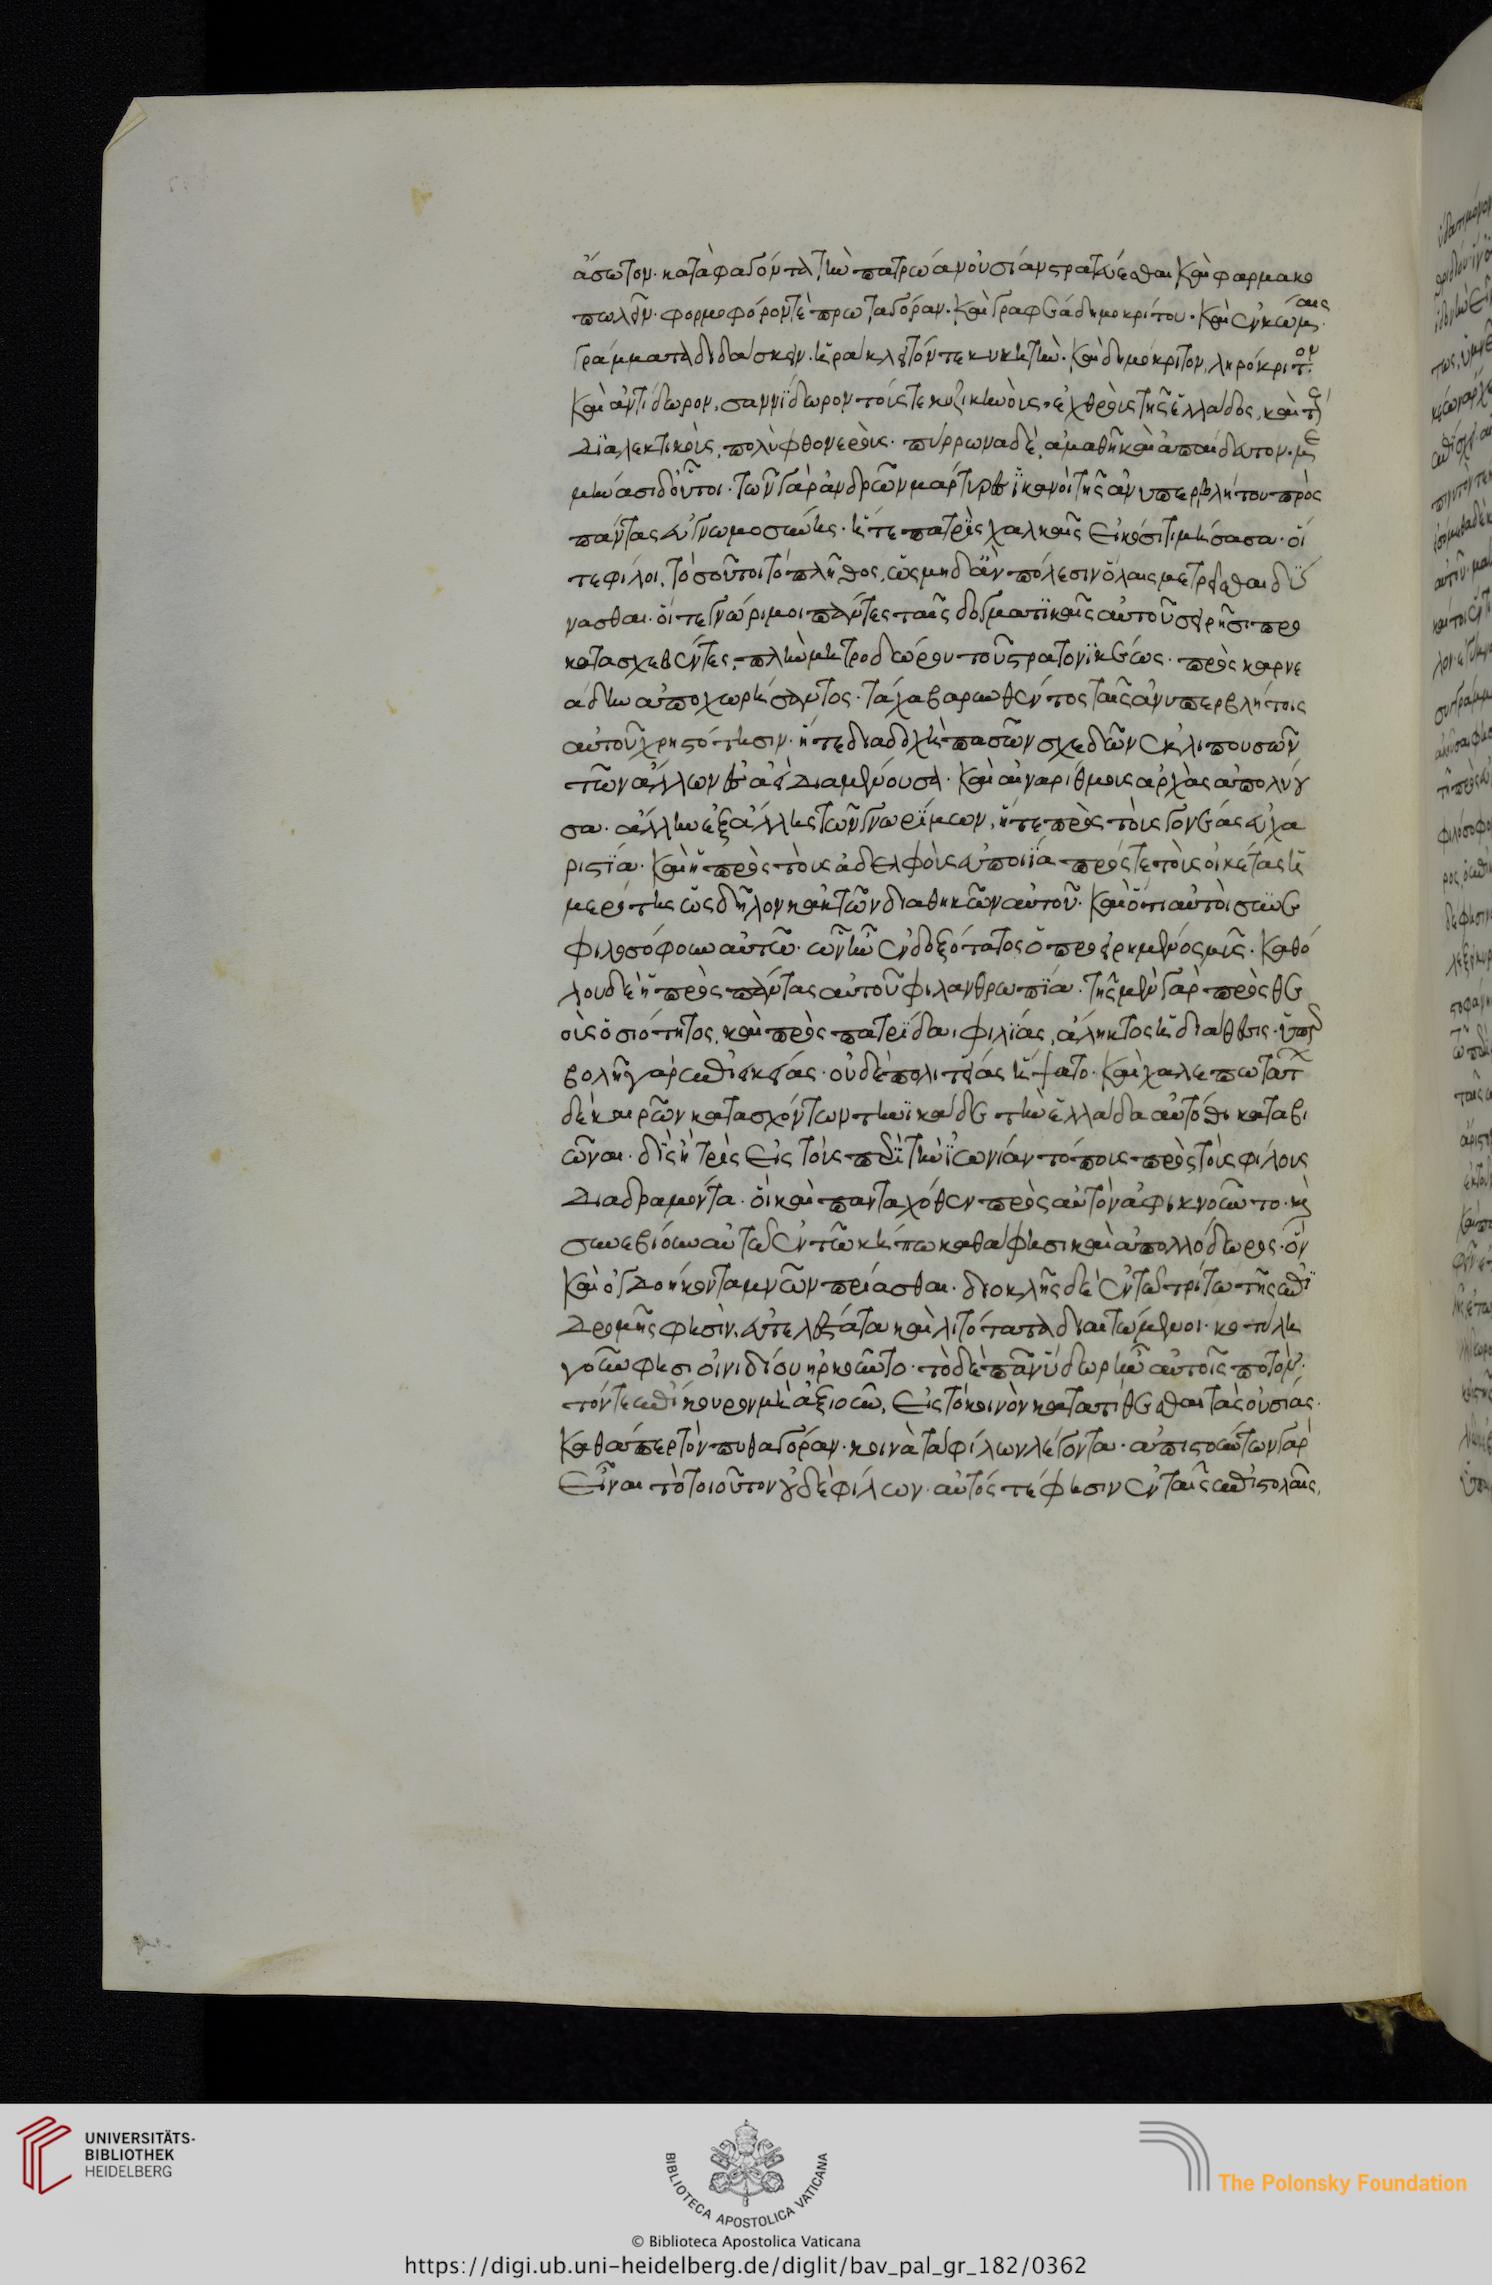 ἄσωτον· καταφαγόντα τὴν πατρώαν οὐσίαν στρατεύεσθαι καὶ φαρμακο
πωλεῖν· φορμοφόρον τὲ πρωταγόραν· καὶ γραφέα δημοκρίτου· καὶ ἐν κώμαις
γράμματα διδάσκειν· ἡράκλειτόν τε κυκητὴν· καὶ δημόκριτον, ληρόκριτον
καὶ ἀντίδωρον, σαννίδωρον τούς τε κυζικηνοὺς ἐχθροὺς τῆς ἑλλάδος, καὶ τοὺς
διαλεκτικοὺς, πολυφθονεροὺς· πύρρωνα δὲ, ἀμαθῆ καὶ ἀπαίδευτον· με
μήνασι δ' οὗτοι· τῶν γὰρ ἀνδρῶν μάρτυρες ἱκανοὶ τῆς ἀνυπερβλήτου πρὸς
πάντας εὐγνωμοσύνης· ἥ τε πατρὶς χαλκαῖς εἰκόσι τιμήσασα· οἵ
τε φίλοι, τοσοῦτοι τὸ πλῆθος, ὡς μηδ' ἂν πόλεσιν ὅλαις μετρεῖσθαι δύ
νασθαι· οἵ τε γνώριμοι πάντες ταῖς δογματικαῖς αὐτοῦ σειρῆσι προ
κατασχεθέντες, πλὴν μητροδώρου τοῦ στρατονικέως· πρὸς καρνε
άδην ἀποχωρήσαντος· τάχα βαρυνθέντος ταῖς ἀνυπερβλήτοις
αὐτοῦ χρηστότησιν· ἥ τε διαδοχὴ πασῶν σχεδὸν ἐκλιπουσῶν
τῶν ἄλλων ἐς ἀεὶ διαμένουσα· καὶ ἀναρίθμους ἀρχὰς ἀπολύου
σα· ἄλλην ἐξ ἄλλης τῶν γνωρίμων, ἥ τε πρὸς τοὺς γονέας εὐχα
ριστία· καὶ ἡ πρὸς τοὺς ἀδελφοὺς εὐποιία πρός τε τοὺς οἰκέτας ἡ
μερότης ὡς δῆλον κἀκ τῶν διαθηκῶν αὐτοῦ· καὶ ὅτι αὐτοὶ συνε
φιλοσόφουν αὐτῶ· ὧν ἦν ἐνδοξότατος ὁ προειρημένος μῦς· καθό
λου δὲ ἡ πρὸς πάντας αὐτοῦ φιλανθρωπία· τῆς μὲν γὰρ πρὸς θε
οὺς ὁσιότητος, καὶ πρὸς πατρίδα, φιλίας, ἄληκτος ἡ διάθεσις· ὑπερ
βολῆ γὰρ ἐπιεικείας· οὐδὲ πολιτείας ἥψατο· καὶ χαλεπωτάτων
δὲ καιρῶν κατασχόντων τηνικάδε τὴν ἑλλάδα αὐτόθι καταβι
ῶναι· δὶς ἢ τρὶς εἰς τοὺς περὶ τὴν ἰωνίαν τόπους πρὸς τοὺς φίλους
διαδραμόντα· οἳ καὶ πανταχόθεν πρὸς αὐτὸν ἀφικνοῦντο· καὶ
συνεβίουν αὐτῶ ἐν τῶ κήπω καθά φησι καὶ ἀπολλόδωρος· ὃν
καὶ ὀγδοήκοντα μνῶν πρίασθαι· διοκλῆς δὲ ἐν τῶ τρίτω τῆς ἐπι
δρομῆς φησὶν, εὐτελέστατα καὶ λιτότατα διαιτώμενοι· κοτύλη
γοῦν φησι οἰνιδίου ἠρκοῦντο· τὸ δὲ πᾶν ὕδωρ ἦν αὐτοῖς ποτόν·
τόν τε ἐπίκουρον μὴ ἀξιοῦν, εἰς τὸ κοινὸν κατατίθεσθαι τὰς οὐσίας·
καθάπερ τὸν πυθαγόραν· κοινὰ τὰ φίλων λέγοντα· ἀπιστούντων γὰρ
εἶναι τὸ τοιοῦτον οὐδὲ φίλων· αὐτός τέ φησιν ἐν ταῖς ἐπιστολαῖς,
UNIVERSITÄTS-
BIBLIOTHEK
HEIDELBERG
BIBLIOTECA APOSTOLICA VATICANA
The Polonsky Foundation
© Biblioteca Apostolica Vaticana
https://digi.ub.uni-heidelberg.de/diglit/bav_pal_gr_182/0362